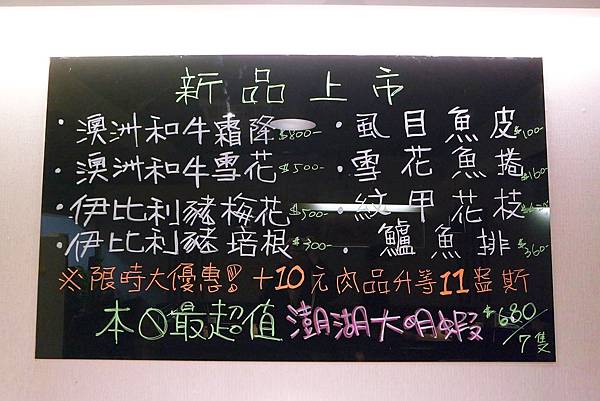 新品上市
·澳洲和牛霜降$800-
·澳洲和牛雪花$500-
·伊比利豬梅花$500-
·伊比利豬培根$300-
·虱目魚皮$100-
·雪花魚捲$160-
·紋甲花枝
·鱸魚排$360-
※限時大優惠!! +10元肉品升等11盎斯
本○最超值澎湖大明蝦$680/7隻